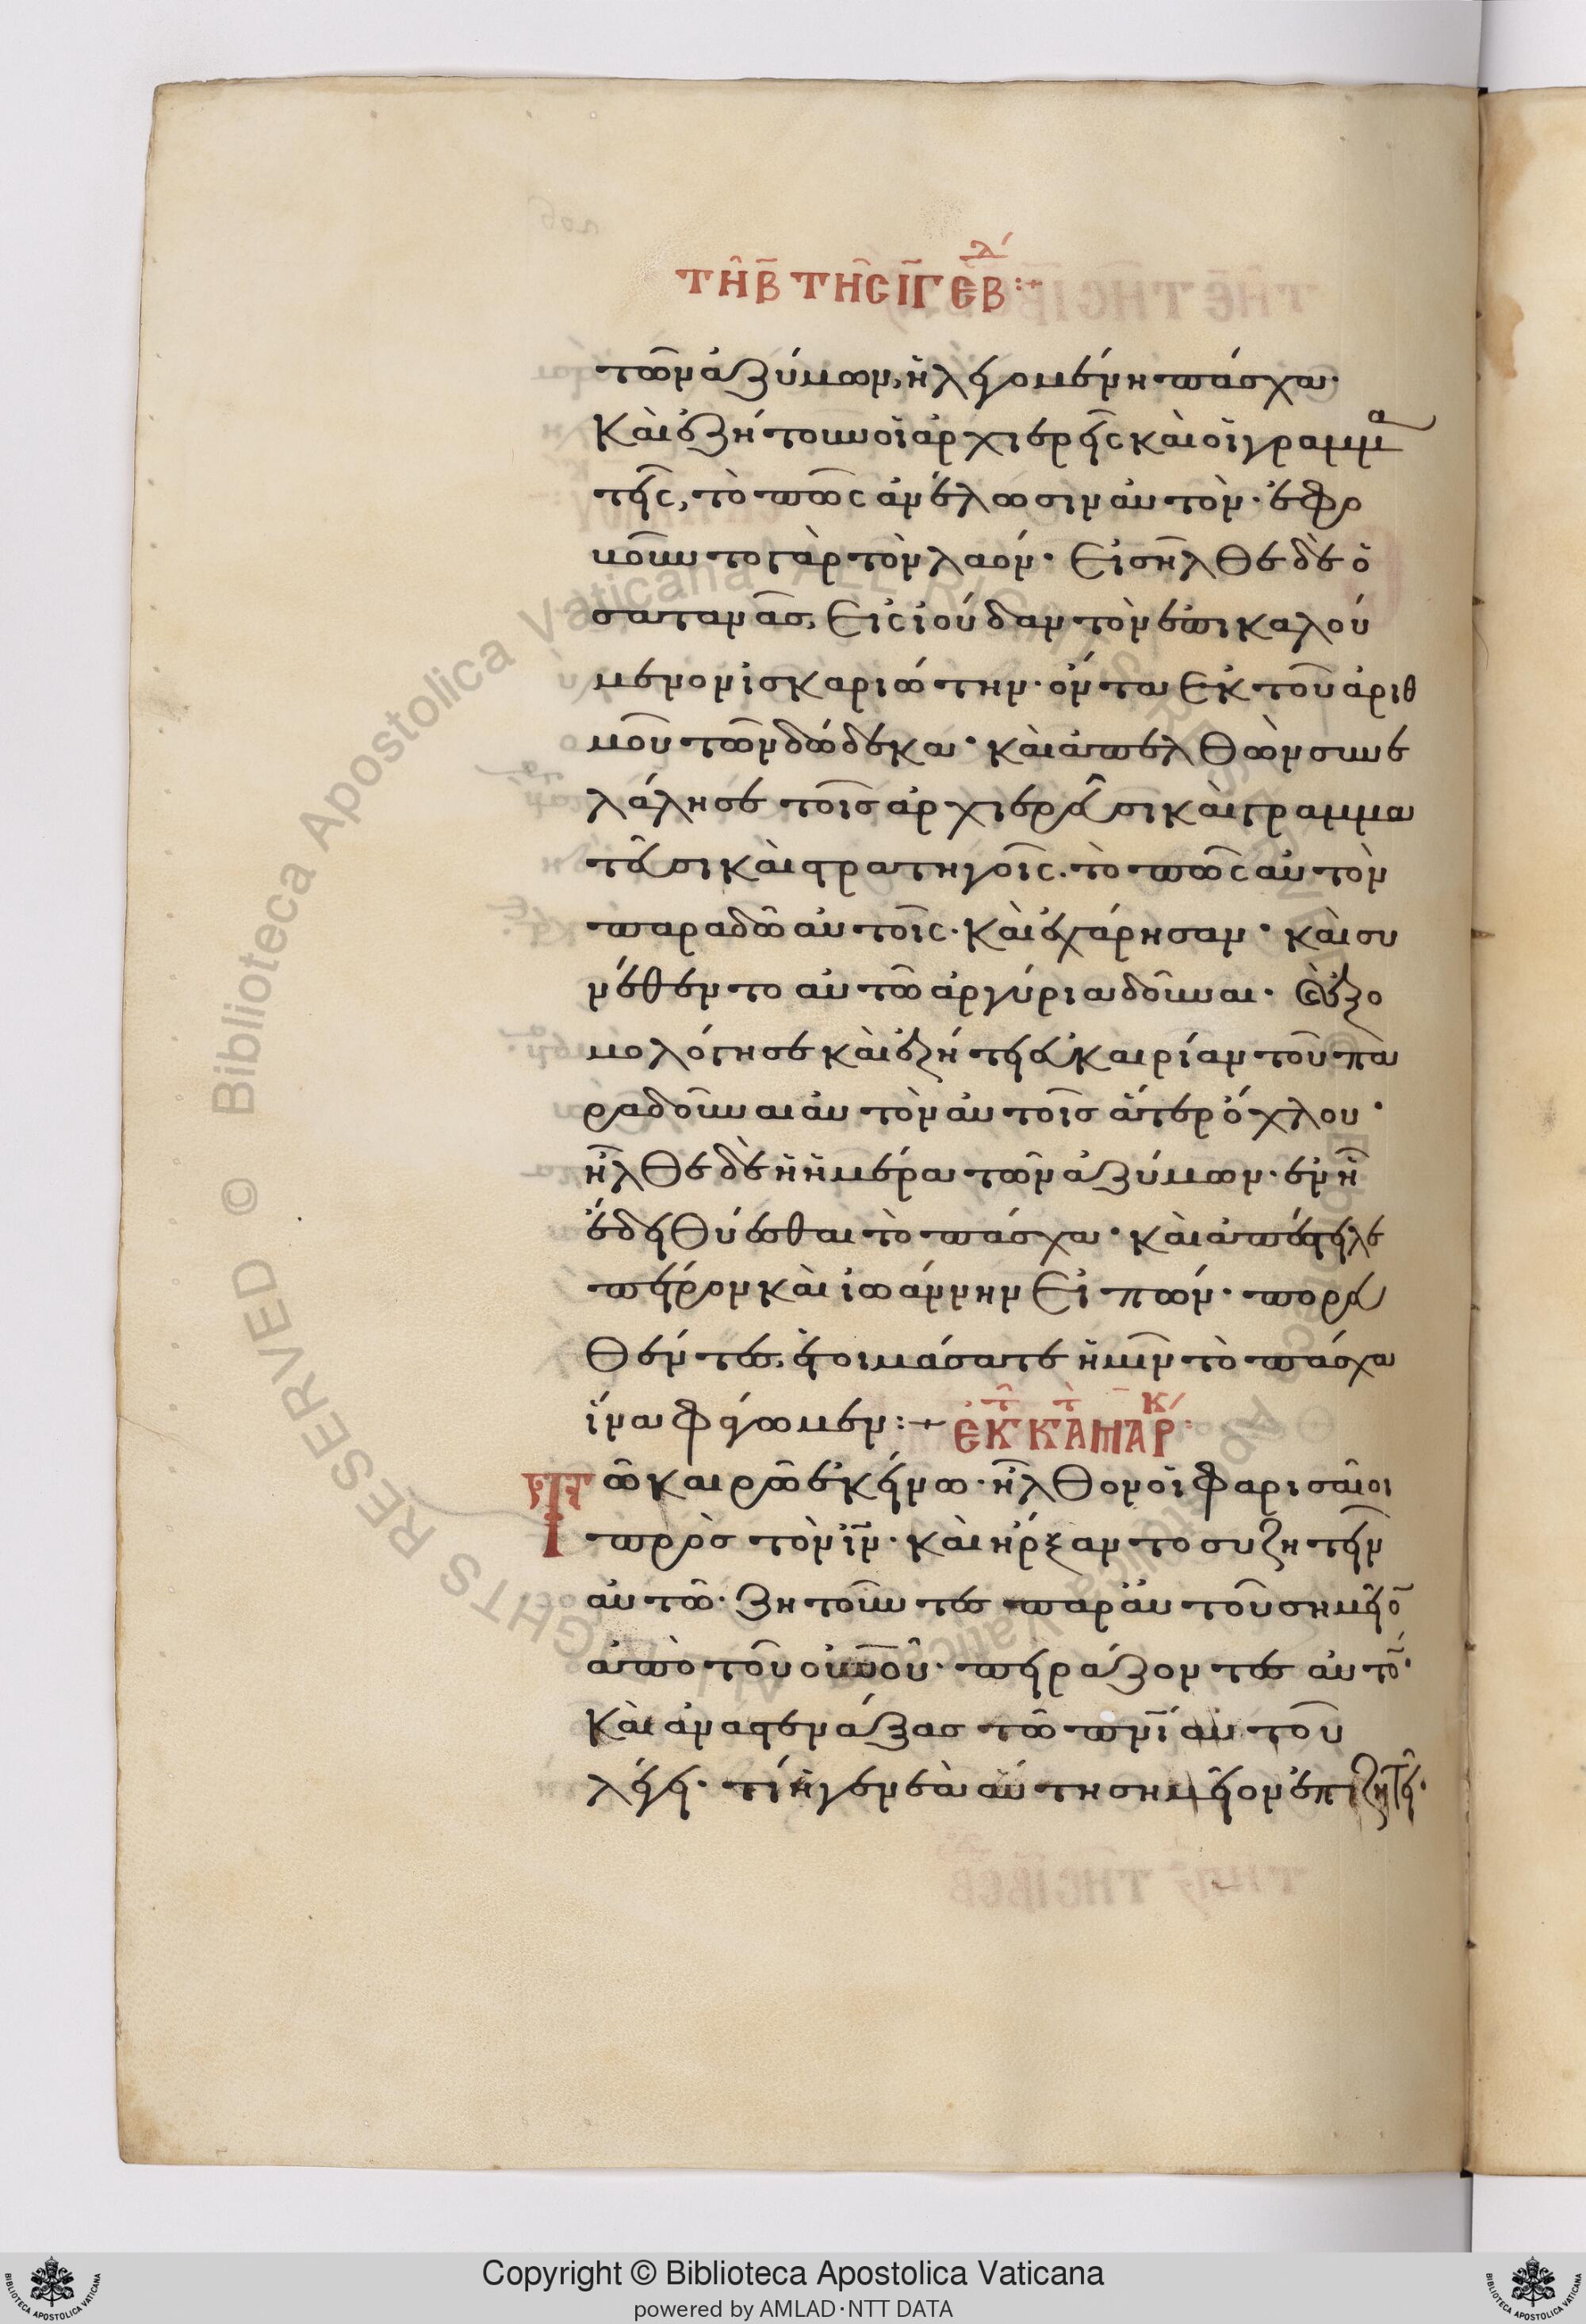 τῆ β̄ τῆς ῑγ̄ ἑβ^δ:
τῶν ἀζύμων, ἡ λεγομένη πάσχα·
Καὶ ἐζήτουν οἱ ἀρχιερεῖς καὶ οἱ γραμμ^α
τεῖς, τὸ πῶς ἀνέλωσιν αὐτὸν· ἐφο
βοῦντο γὰρ τὸν λαόν· Εἰσῆλθε δὲ ὁ
σατανᾶς, Εἰς ἰούδαν τὸν ἐπικαλού
μενον ἰσκαριώτην· ὄντα Ἐκ τοῦ ἀριθ
μοῦ τῶν δώδεκα· καὶ ἀπελθὼν συνε
λάλησε τοῖς ἀρχιερεῦσι καὶ γραμμα
τεῦσι καὶ στρατηγοῖς· τὸ πῶς αὐτὸν
παραδῶ αὐτοῖς· Καὶ ἐχάρησαν· καὶ συ
νέθεντο αὐτῶ ἀργύρια δοῦναι· (καὶ) ἐξο
μολόγησε καὶ ἐζήτει εὐκαιρίαν τοῦ πα
ραδοῦναι αὐτὸν αὐτοῖς ἄτερ ὄχλου·
ἦλθε δὲ ἡ ἡμέρα τῶν ἀζύμων· ἐν ἧ
ἔδει θύεσθαι τὸ πάσχα· καὶ ἀπέστειλε
πέτρον καὶ ἰωάννην Εἰπών· πορευ
θέντες, ἑτοιμάσατε ἡμῖν τὸ πάσχα
ἵνα φάγωμεν:+ ἐκ τ̑ κ̀ατ̀ μαρ^κ:
Τῶ καιρῶ ἐκείνω· ἦλθον οἱ φαρισαῖοι
πρὸς τὸν ι̅ν̅· καὶ ἤρξαντο συζητεῖν
αὐτῶ· ζητοῦντες παρ' αὐτοῦ σημεῖο̅
ἀπὸ τοῦ ου̅νου̅· πειράζοντες αὐτὸ̅·
Καὶ ἀναστενάξας τῶ πν̅ι αὐτοῦ
λέγει· τί ἡ γενεὰ αὕτη σημεῖον ἐπιζητεῖ·